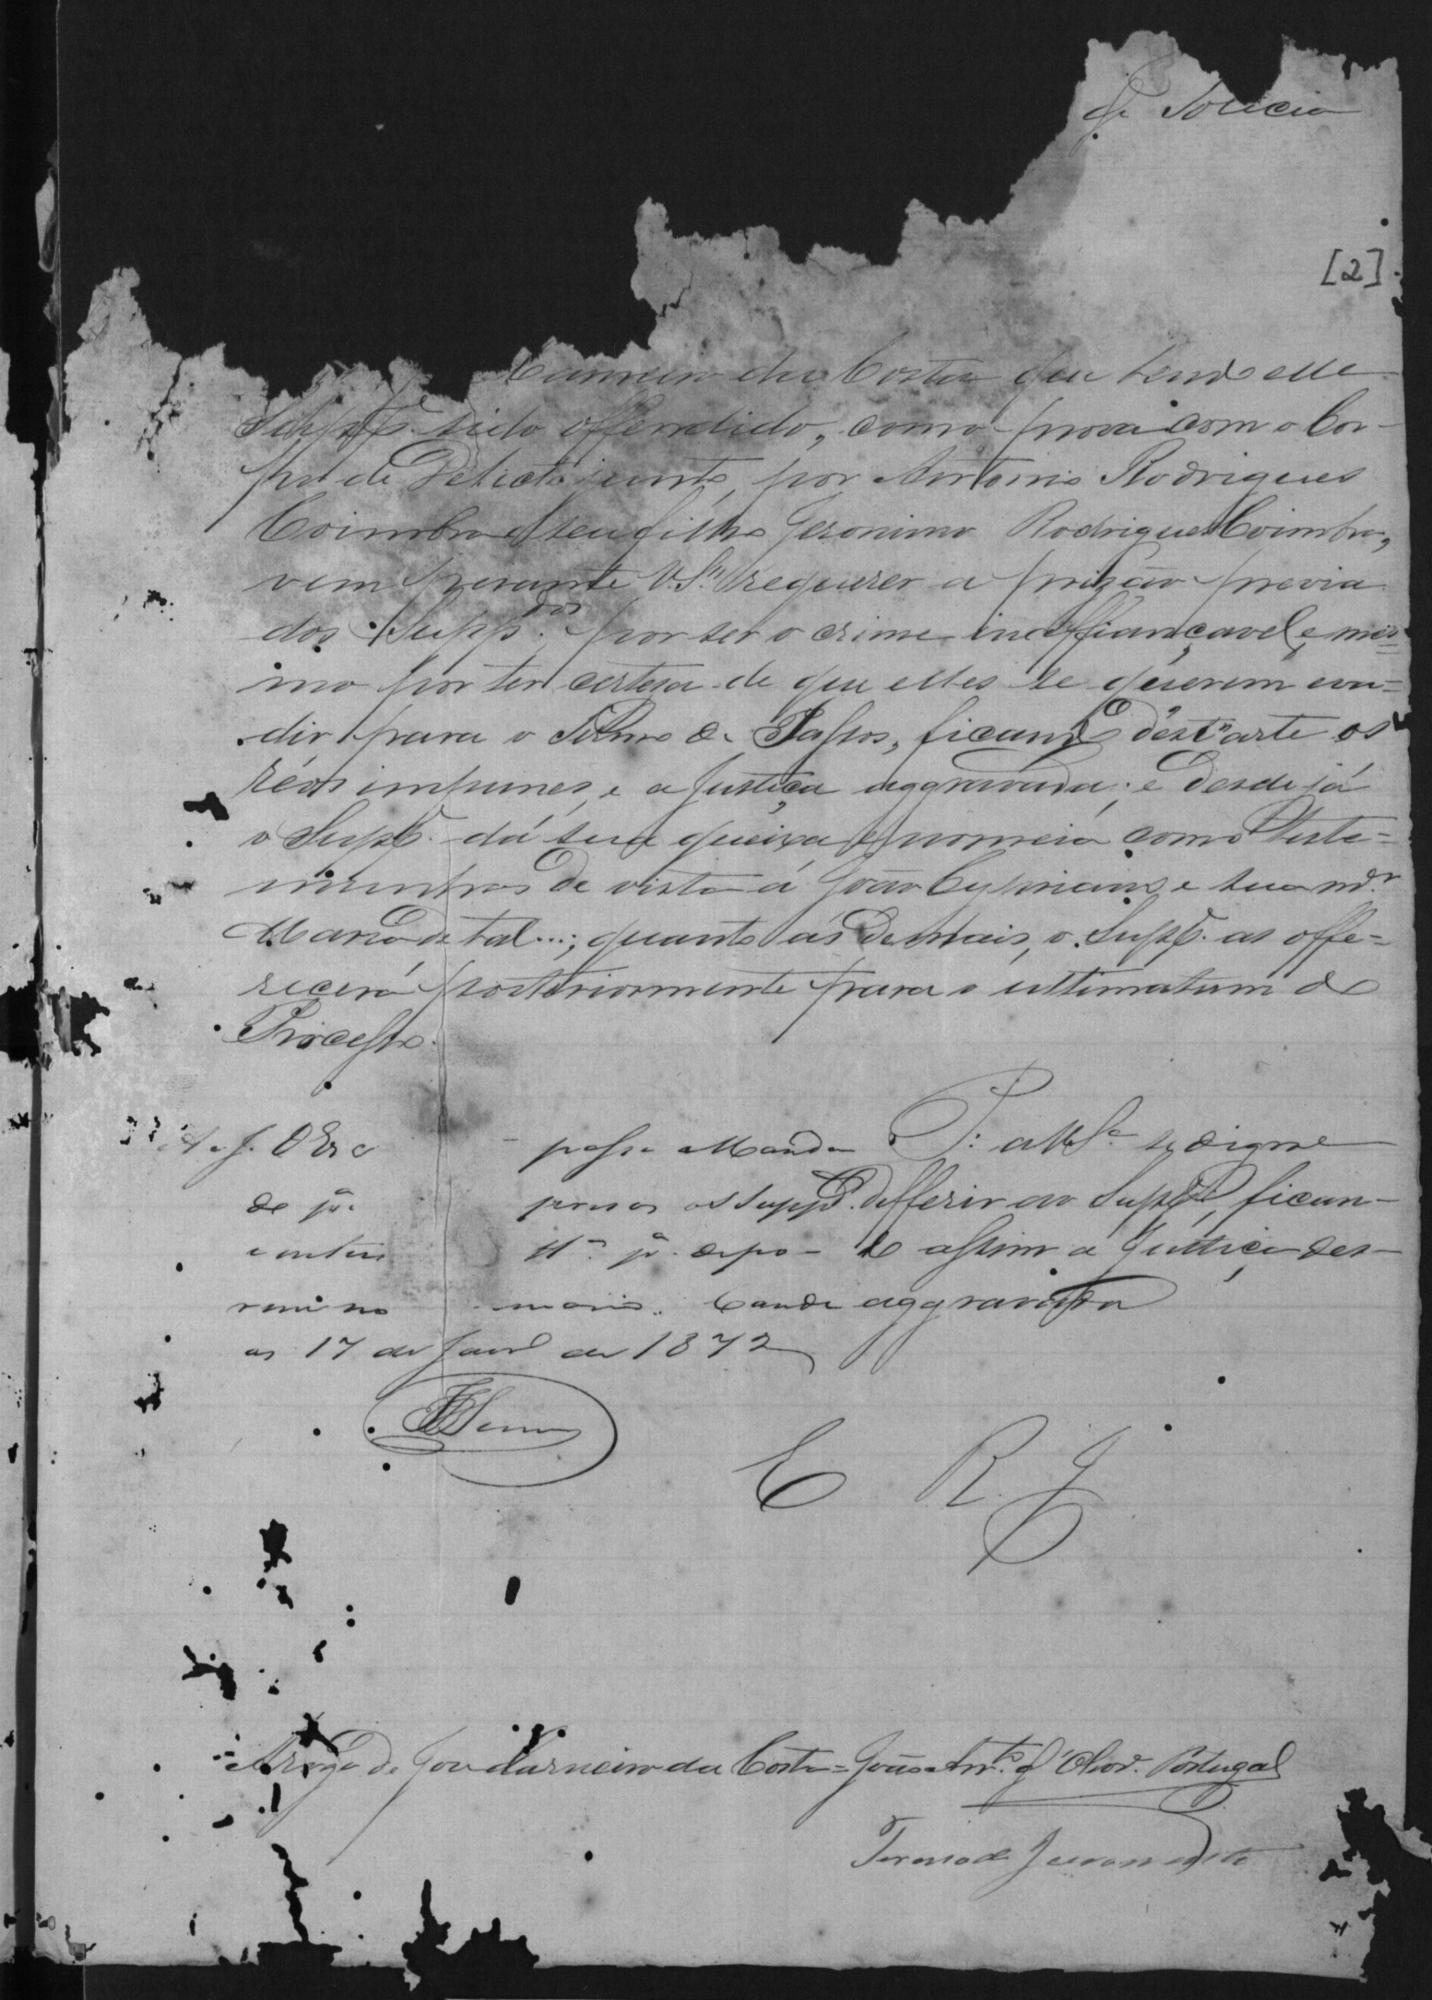 de Policia
[2]
Carneiro da Costa que tendo elle
Suppe. sido offendido, como prova com o Cor-
po de Delicto junto, por Antonio Rodrigues
Coimbra e seu filho Jeronimo Rodrigues Coimbra,
vem perante V.Sa. requerer a prizão previa
dos Suppdos. por ser o crime inaffiançavel, e mes=
mo por ter certesa de que elles se querem eva=
dir para o Termo de Passos, ficando dest'arte os
réos impunes, e a Justiça aggravada; e desde já
o Suppe. dá sua queixa e nomeia como teste=
munhas de vista á João Cypriano, e sua mer
Maria de tal...; quanto ás demais, o Suppe. as offe=
recerá posteriormente para o ultimatum do
Processo.
P. a V.Sa. se digne
defferir ao Suppe., fican-
do assim a Justiça des-
aggravada
passe Mandado
presos os Suppdos.
as 17 de Janro de 1872
E R J
Arogo de João Carneiro da Costa = João Anto. d'Olivra. Portugal
Termo de Juramento